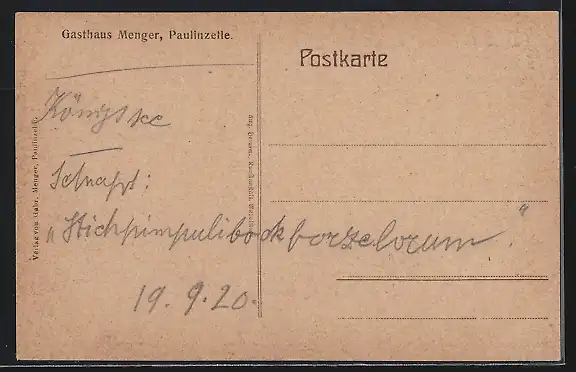 Gasthaus Menger, Paulinzelle.
Postkarte
Königssee
Schnapst:
"Stichpimpulibockforzelorum."
19. 9. 20.
Verlag von Gebr. Menger, Paulinzelle.